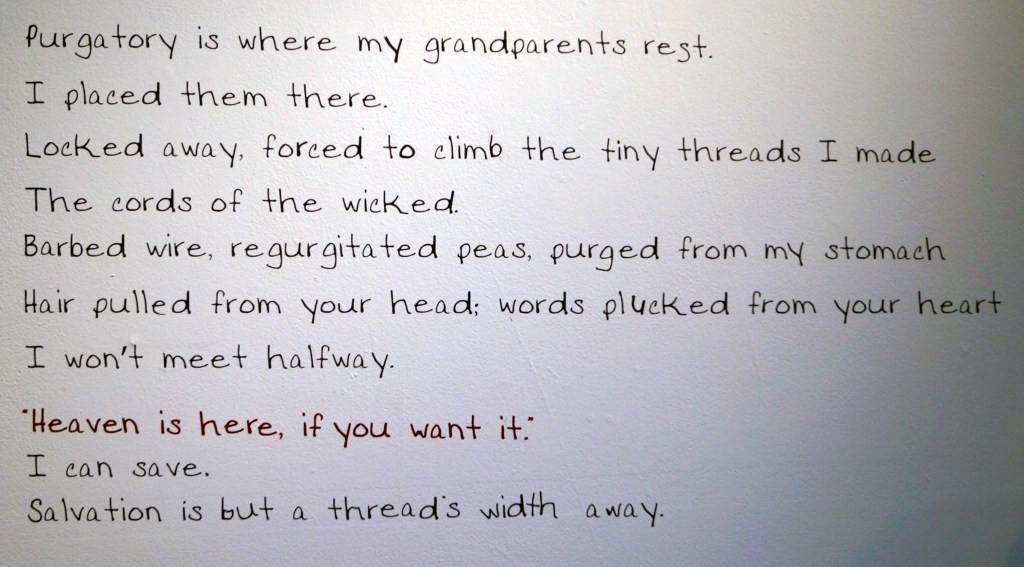 Purgatory is where my grandparents rest.
I placed them there.
Locked away, forced to climb the tiny threads I made
The cords of the wicked.
Barbed wire, regurgitated peas, purged from my stomach
Hair pulled from your head; words plucked from your heart
I won't meet halfway.
"Heaven is here, if you want it."
I can save.
Salvation is but a thread's width away.